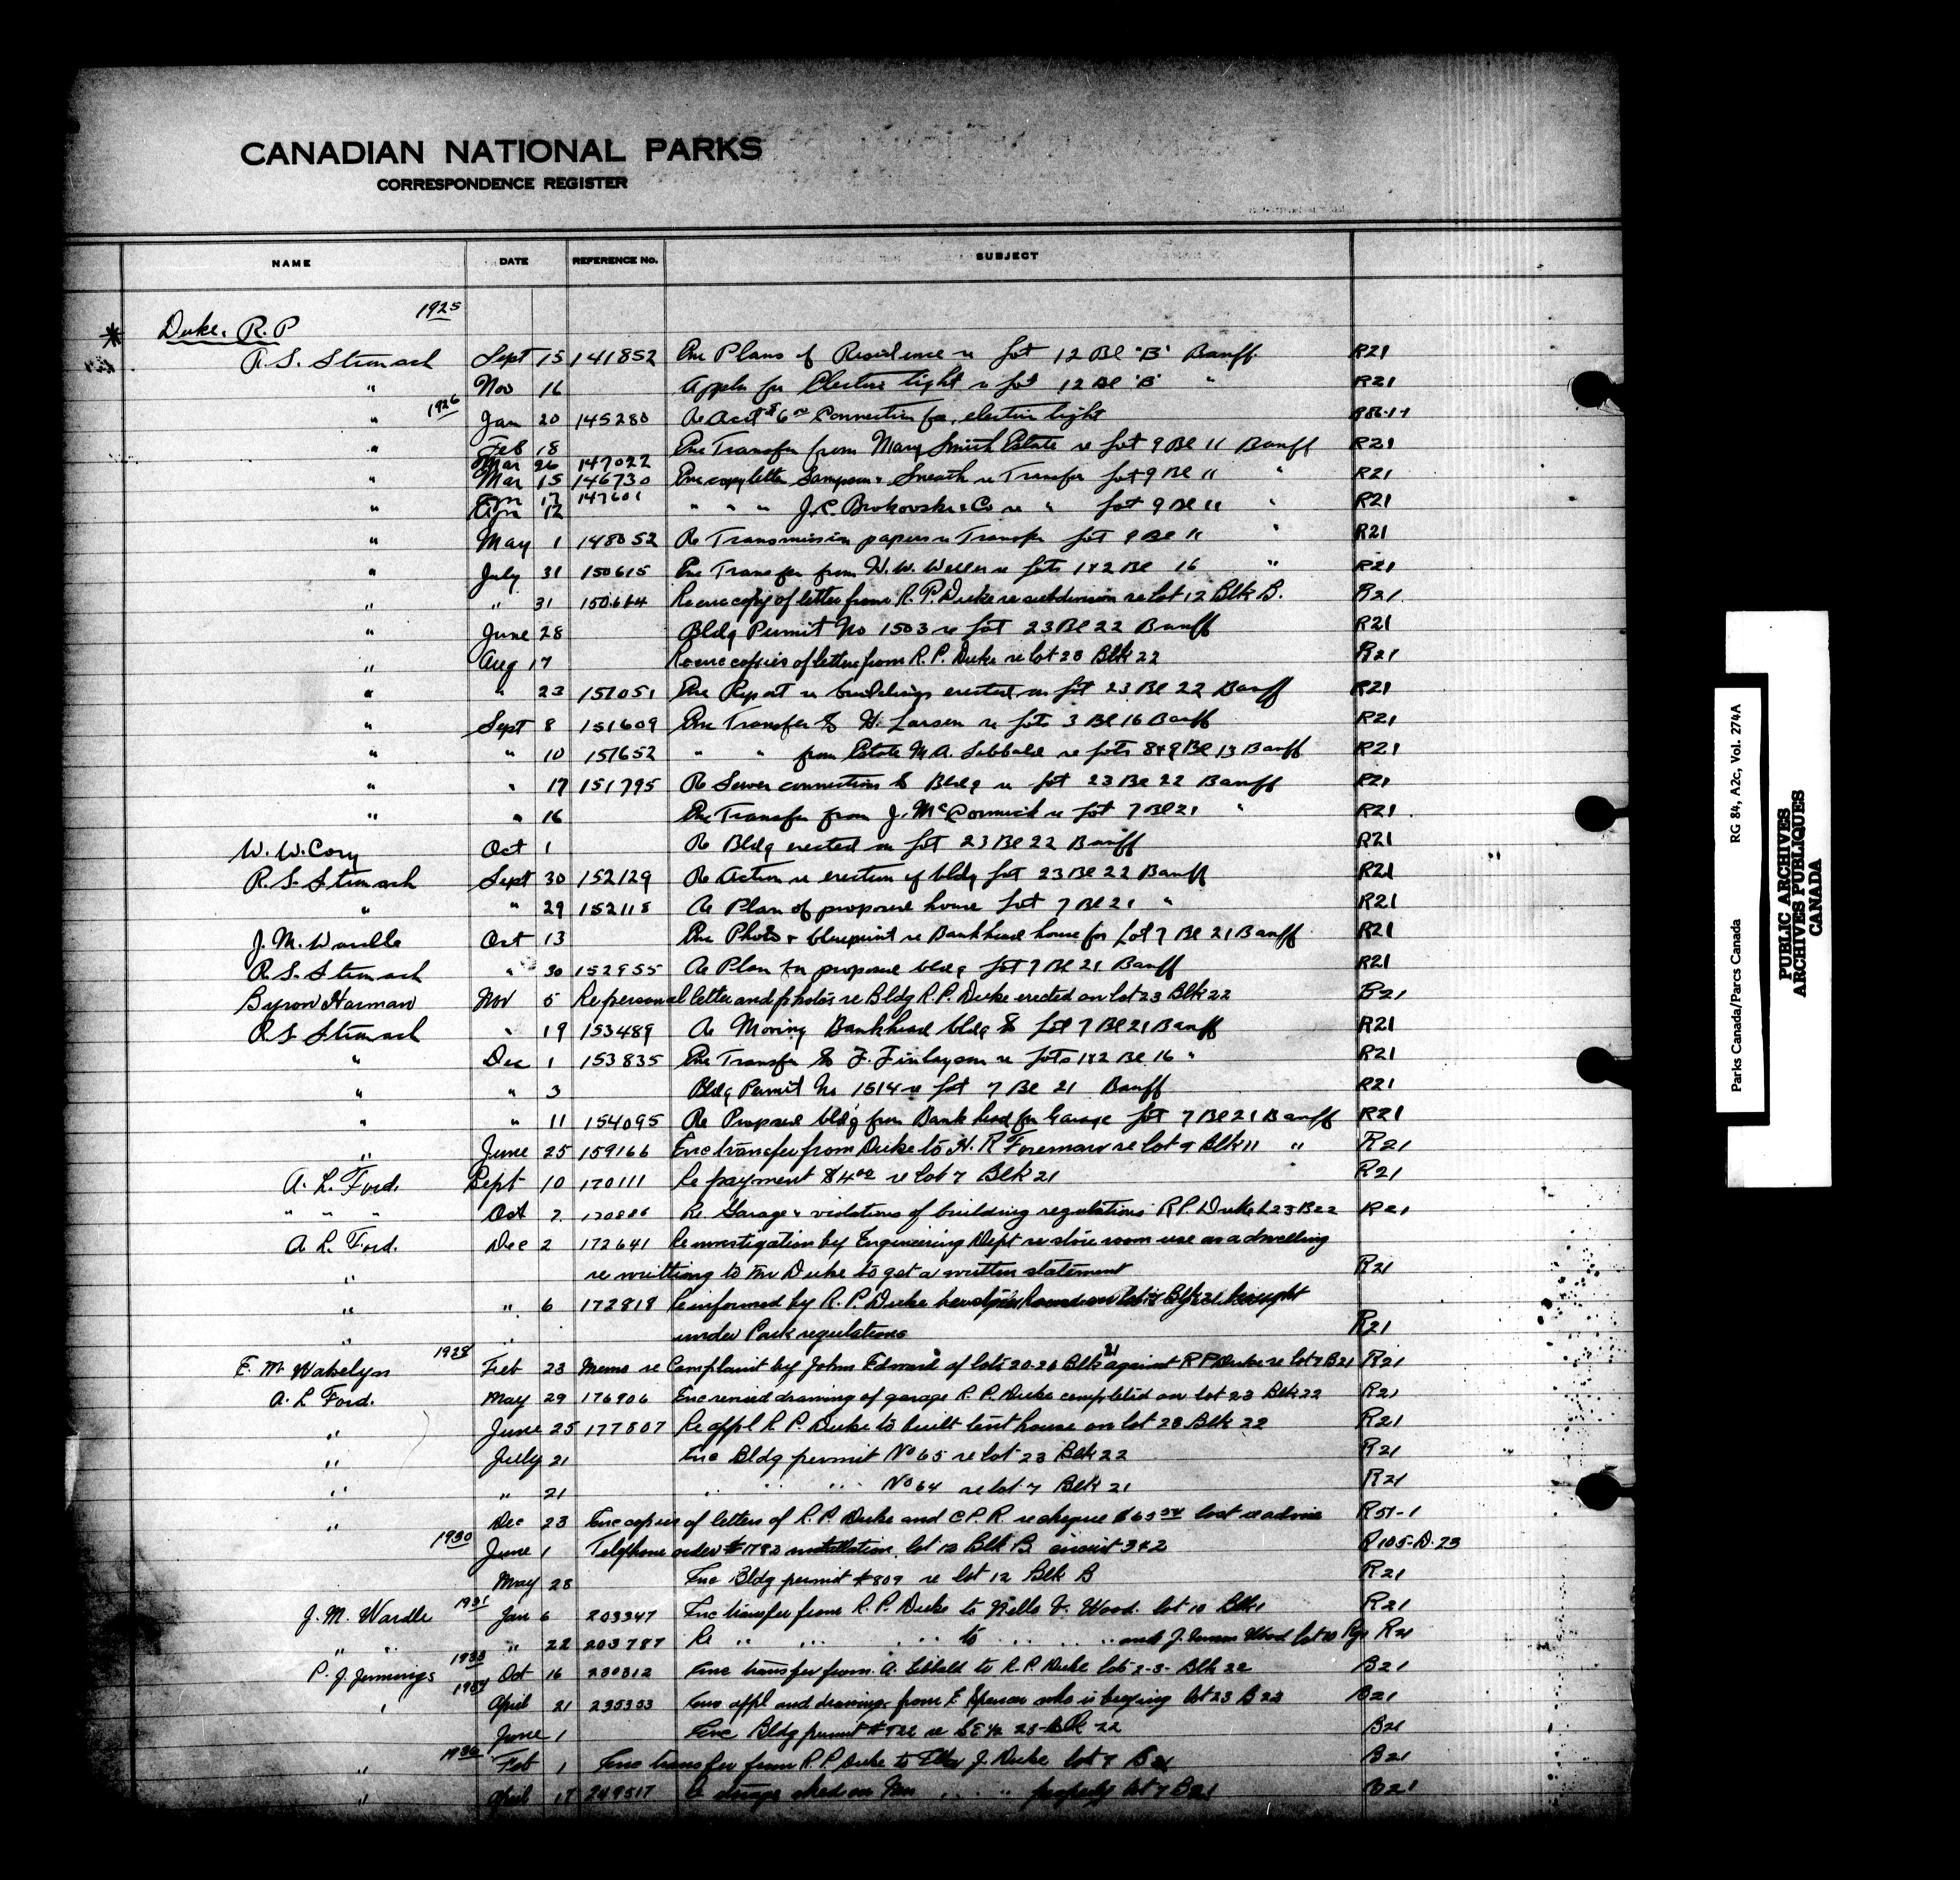 CANADIAN NATIONAL PARKS
CORRESPONDENCE REGISTER
NAME DATE REFERENCE No. SUBJECT
1925
* Duke, R.P
R.S. Stronach Sept 15 141852 Enc Plans of Residence re Lot 12 Bl "B" Banff R21
" Nov 16 Appln for Electric light re Lot 12 Bl "B" " R21
1926
" Jan 20 145280 Re Acct $6.00 Connection for electric light
" Feb 18 Enc Transfer from Mary Smith Estate re Lot 9 Bl 11 Banff R21
Mar 26 147022
" Mar 15 146730 Enc copy letter Sampson & Sneath re Transfer Lot 9 Bl 11 " R21
Apr 17 147601
" Apr 12 " " " J.C. Brokovski & Co re " Lot 9 Bl 11 " R21
" May 1 148052 Re Transmission papers re Transfer Lot 9 Bl 11 " R21
" July 31 150615 Enc Transfer from W.W. Weller re Lots 1&2 Bl 16 " R21
" " 31 150614 Re enc copy of letter from R.P. Duke re subdivision re lot 12 Blk B. R21
" June 28 Bldg Permit No 1503 re Lot 23 Bl 22 Banff R21
" Aug 17 Re enc copies of letter from R.P. Duke re lot 23 Blk 22 R21
" " 23 151051 Enc Report re buildings erected on Lot 23 Bl 22 Banff R21
" Sept 8 151609 Enc Transfer to H. Larsen re Lots 3 Bl 16 Banff R21
" " 10 151652 " " from Estate M.A. Sibbald re Lots 8&9 Bl 13 Banff R21
" " 17 151795 Re Sewer connection to Bldg re Lot 23 Bl 22 Banff R21
" " 16 Enc Transfer from J. McCormick re Lot 7 Bl 21 " R21
W.W. Cory Oct 1 Re Bldg erected on Lot 23 Bl 22 Banff R21
R.S. Stronach Sept 30 152129 Re Action re erection of bldg Lot 23 Bl 22 Banff R21
" " 29 152118 Re Plan of proposed house Lot 7 Bl 21 " R21
J.M. Wardle Oct 13 Enc Photo & blueprint re Bankhead house for Lot 7 Bl 21 Banff R21
R.S. Stronach " 30 152955 Re Plan for proposed bldg Lot 7 Bl 21 Banff R21
Byron Harman Nov 5 Re personal letter and photos re Bldg R.P. Duke erected on lot 23 Blk 22 R21
R.S. Stronach " 19 153489 Re Moving Bankhead bldg to Lot 7 Bl 21 Banff R21
" Dec 1 153835 Enc Transfer to F. Finlayson re Lots 1&2 Bl 16 " R21
" " 3 Bldg Permit No 1514 re Lot 7 Bl 21 Banff R21
" " 11 154095 Re Proposed bldg from Bankhead for Garage Lot 7 Bl 21 Banff R21
" June 25 159166 Enc transfer from Duke to H.R Foreman re lot 9 Blk 11 " R21
A. L. Ford. Sept 10 170111 Re payment $4.00 re lot 7 Blk 21 R21
" " " Oct 7 170886 Re. Garage & violations of building regulations R P Duke L23 B22 R21
A L. Ford. Dec 2 172641 Re investigation by Engineering Dept re store room use as a dwelling
" re writting to Mr Duke to get a written statement R21
" " 6 172818 Re informed by R. P. Duke
" " under Park regulations R21
1928
E. M. Wakelyn Feb 23 Memo re Complaint by John Edward of lots 20-26 Blk 21 against R P Duke re lot 7 B21 R21
A. L Ford. May 29 176906 Enc revised drawing of garage R. P. Duke completed on lot 23 Blk 22 R21
" June 25 177807 Re appl R P. Duke to built tent house on lot 23 Blk 22 R21
" July 21 Enc Bldg permit No 65 re lot 23 Blk 22 R21
" " 21 " " " No 64 re lot 7 Blk 21 R21
" Dec 23 Enc copies of letters of R. P. Duke and C P. R. re cheque lost re R51-1
1930
June 1 Telephone order #1782 installation lot 12 Blk B. circuit 3&2 R105-D.23
May 28 Enc Bldg permit #809 re lot 12 Blk B R21
1931
J. M. Wardle Jan 6 203347 Enc transfer from R. P. Duke to V. Wood. lot 10 Blk 1 R21
" " " 22 203787 Re " " " to " " and J. Wood lot 10 R21
1933
P. J. Jennings Oct 16 230312 Enc transfer from A. Sibbald to R.P. Duke lots 2-3- Blk 22 R21
1934
" April 21 235353 Enc appl and drawings from E Spencer who is buying lot 23 B 22 R21
June 1 Enc Bldg permit re 23 Blk 22 R21
" Feb 1 Enc transfer from R. P. Duke to J. Duke lot 7 B 21 R21
" April 17 249517 Re shed on property lot 7 B 21 R21
Parks Canada/Parcs Canada RG 84, A2c, Vol. 274A
PUBLIC ARCHIVES
ARCHIVES PUBLIQUES
CANADA